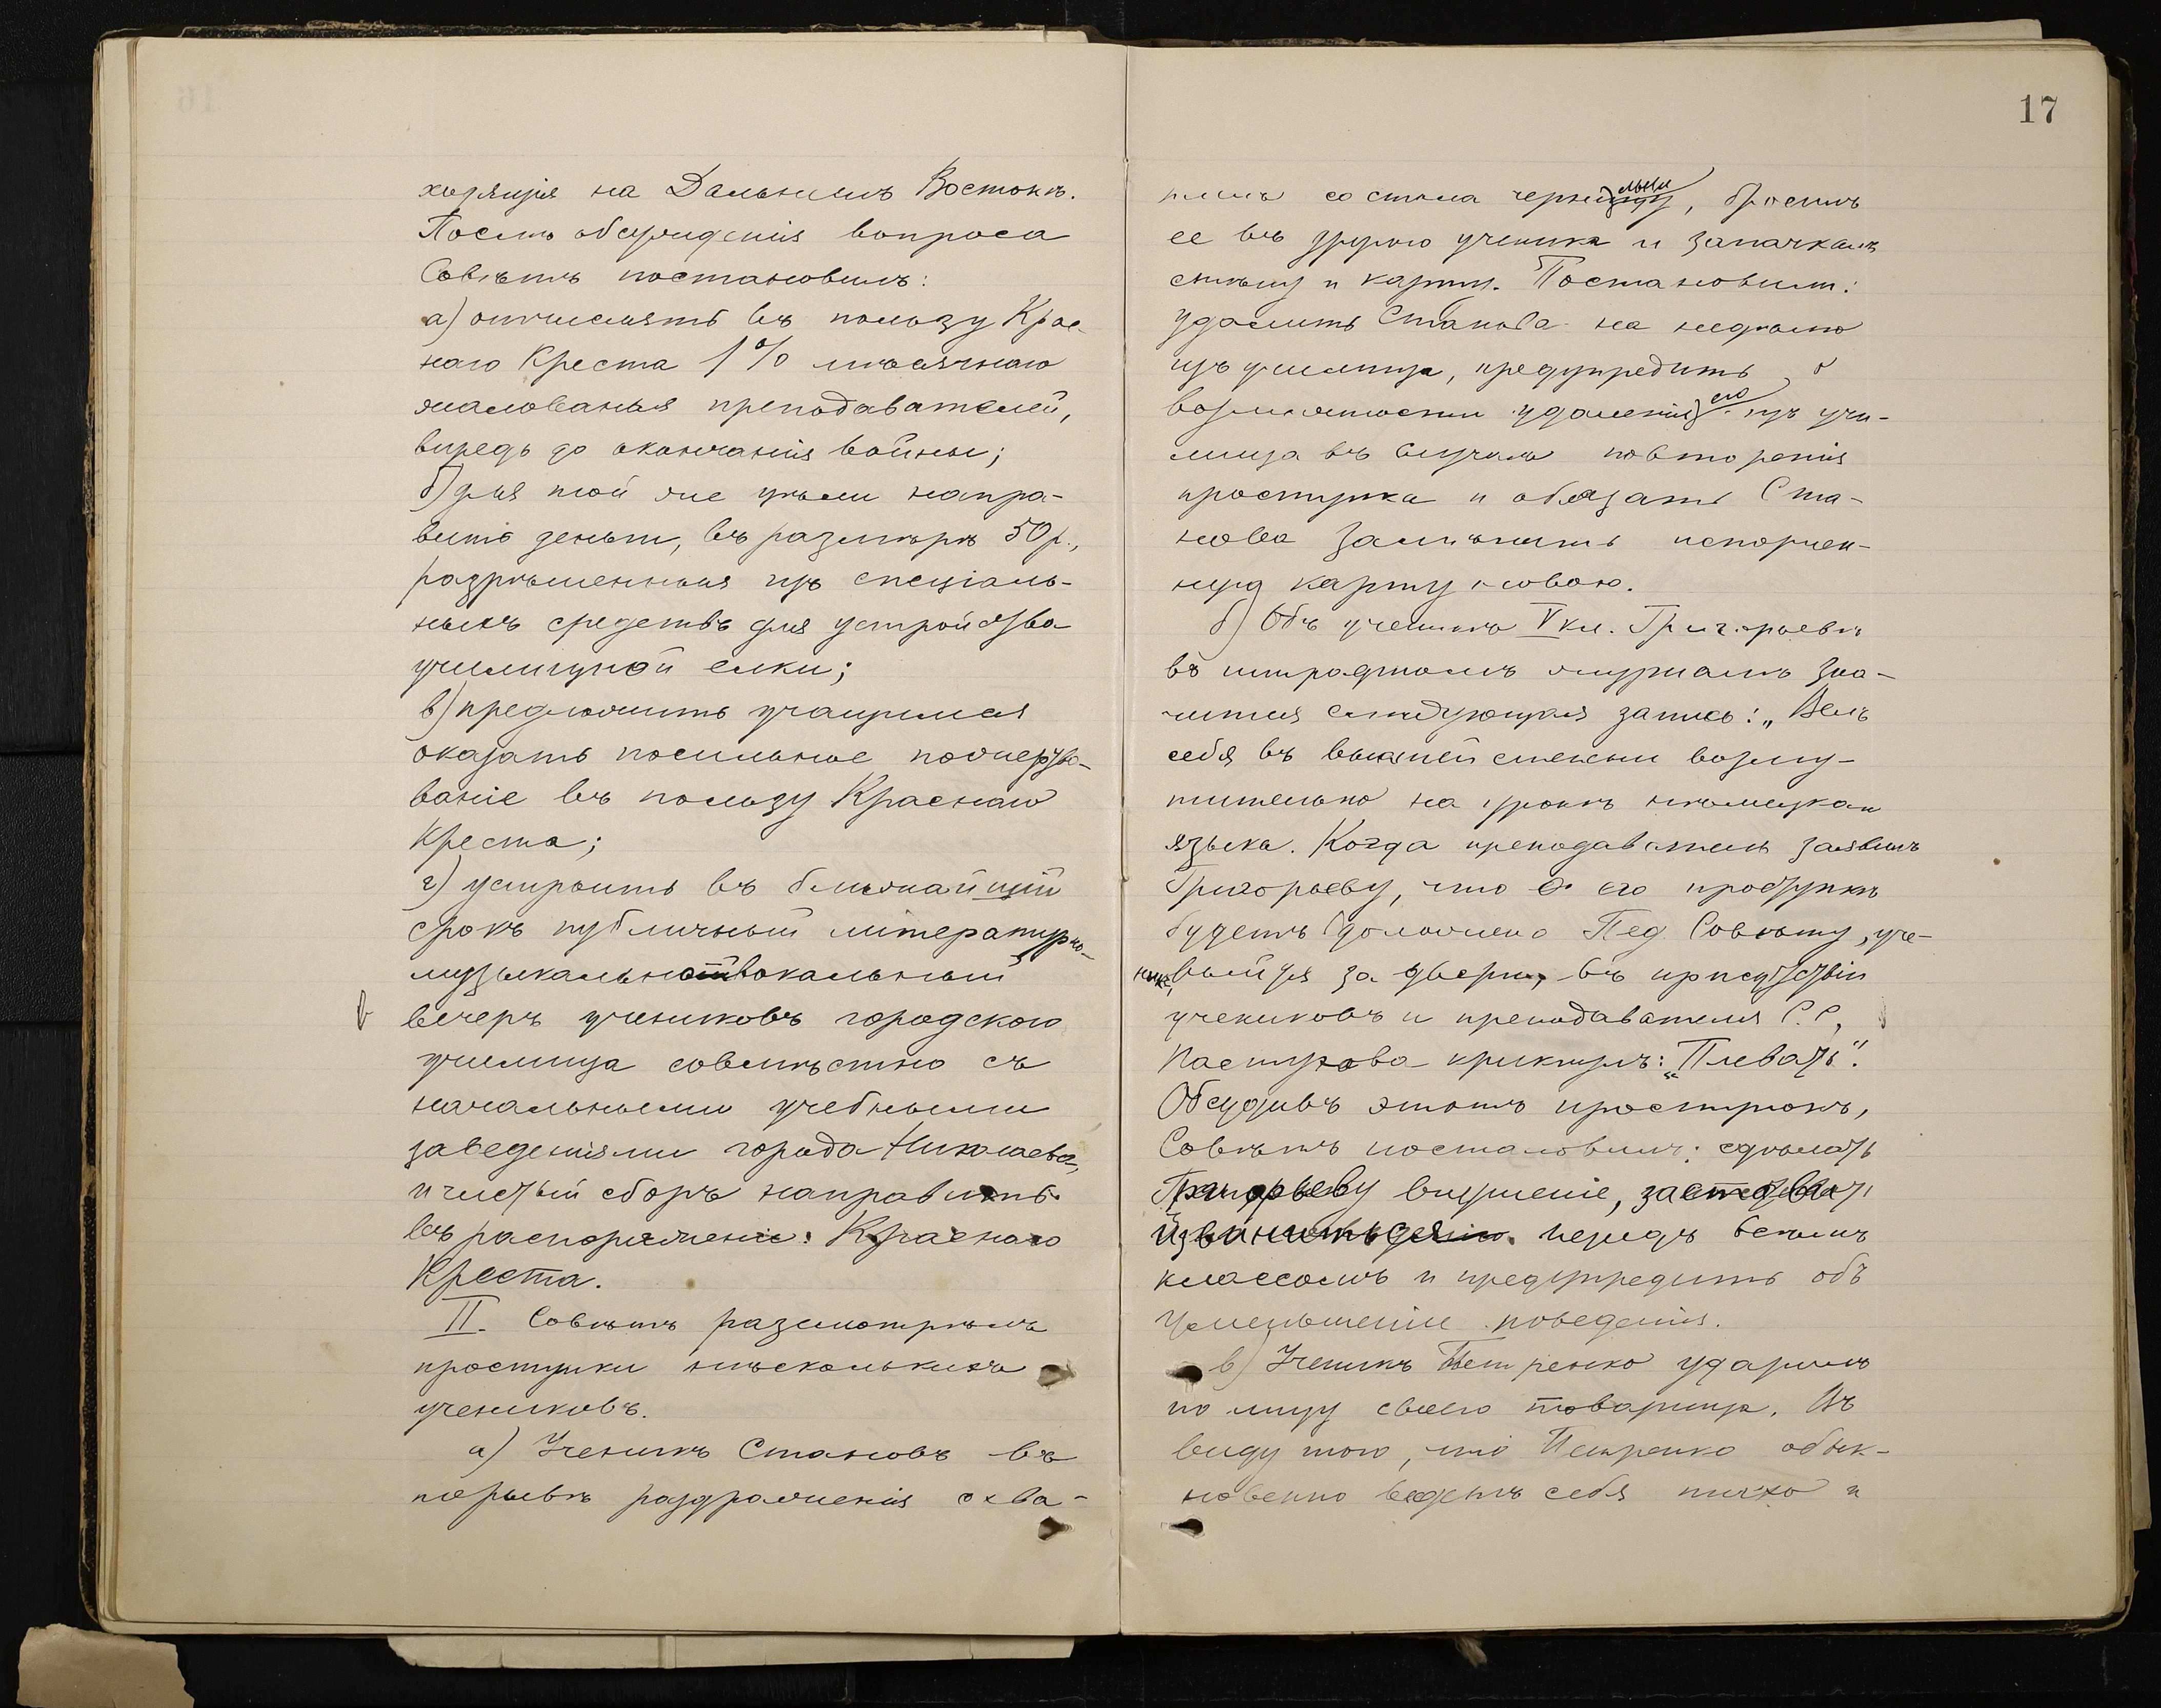 ходящія на Дальнемъ Востокѣ.
Послѣ обсужденія вопроса
Совѣтъ постановилъ:
а) отчислять въ пользу Крас-
наго Креста 1% мѣсячнаго
жалованья преподавателей,
впредь до окончанія войны;
б) для той же цѣли напра-
вить деньги, въ размѣрѣ 50 р.,
разрѣшенныя изъ спеціаль-
ныхъ средствъ для устройства
училищной елки;
в) предложить учащимся
оказать посильное пожертво-
ваніе въ пользу Краснаго
Креста;
г) устроить въ ближайшій
срокъ публичный литературно-
музыкально вокальный
вечеръ учениковъ городского
училища совмѣстно съ
начальными учебными
заведеніями города Николаева,
и чистый сборъ направить
въ распоряженіе Краснаго
Креста.
II. Совѣтъ разсмотрѣлъ
проступки нѣсколькихъ
учениковъ.
а) Ученикъ Становъ въ
порывѣ раздраженія схва-
17
тилъ со стола чернильницу, бросилъ
ее въ другого ученика и запачкалъ
стѣну и карту. Постановили:
удалить Станова на недѣлю
изъ училища, предупредить о
возможности удаленія его изъ учи-
лища въ случаѣ повторенія
проступка и обязать Ста-
нова замѣнить испорчен-
ную карту новою.
б) Объ ученикѣ V кл. Григорьевѣ
въ штрафномъ журналѣ зна-
чится слѣдующая запись: „Велъ
себя въ высшей степени возму-
тительно на урокѣ нѣмецкаго
языка. Когда преподаватель заявилъ
Григорьеву, что о его проступкѣ
будетъ доложено Пед. Совѣту, уче-
никъ, выйдя за дверь, въ присутствіи
учениковъ и преподавателя С. С.
Пастухова крикнулъ: „Плевать".
Обсудивъ этотъ проступокъ,
Совѣтъ постановилъ: сдѣлать
Григорьеву внушеніе, заставить
извиниться передъ всѣмъ
классомъ и предупредить объ
уменьшеніи поведенія.
в) Ученикъ Петренко ударилъ
по лицу своего товарища. Въ
виду того, что Петренко обык-
новенно ведетъ себя тихо и